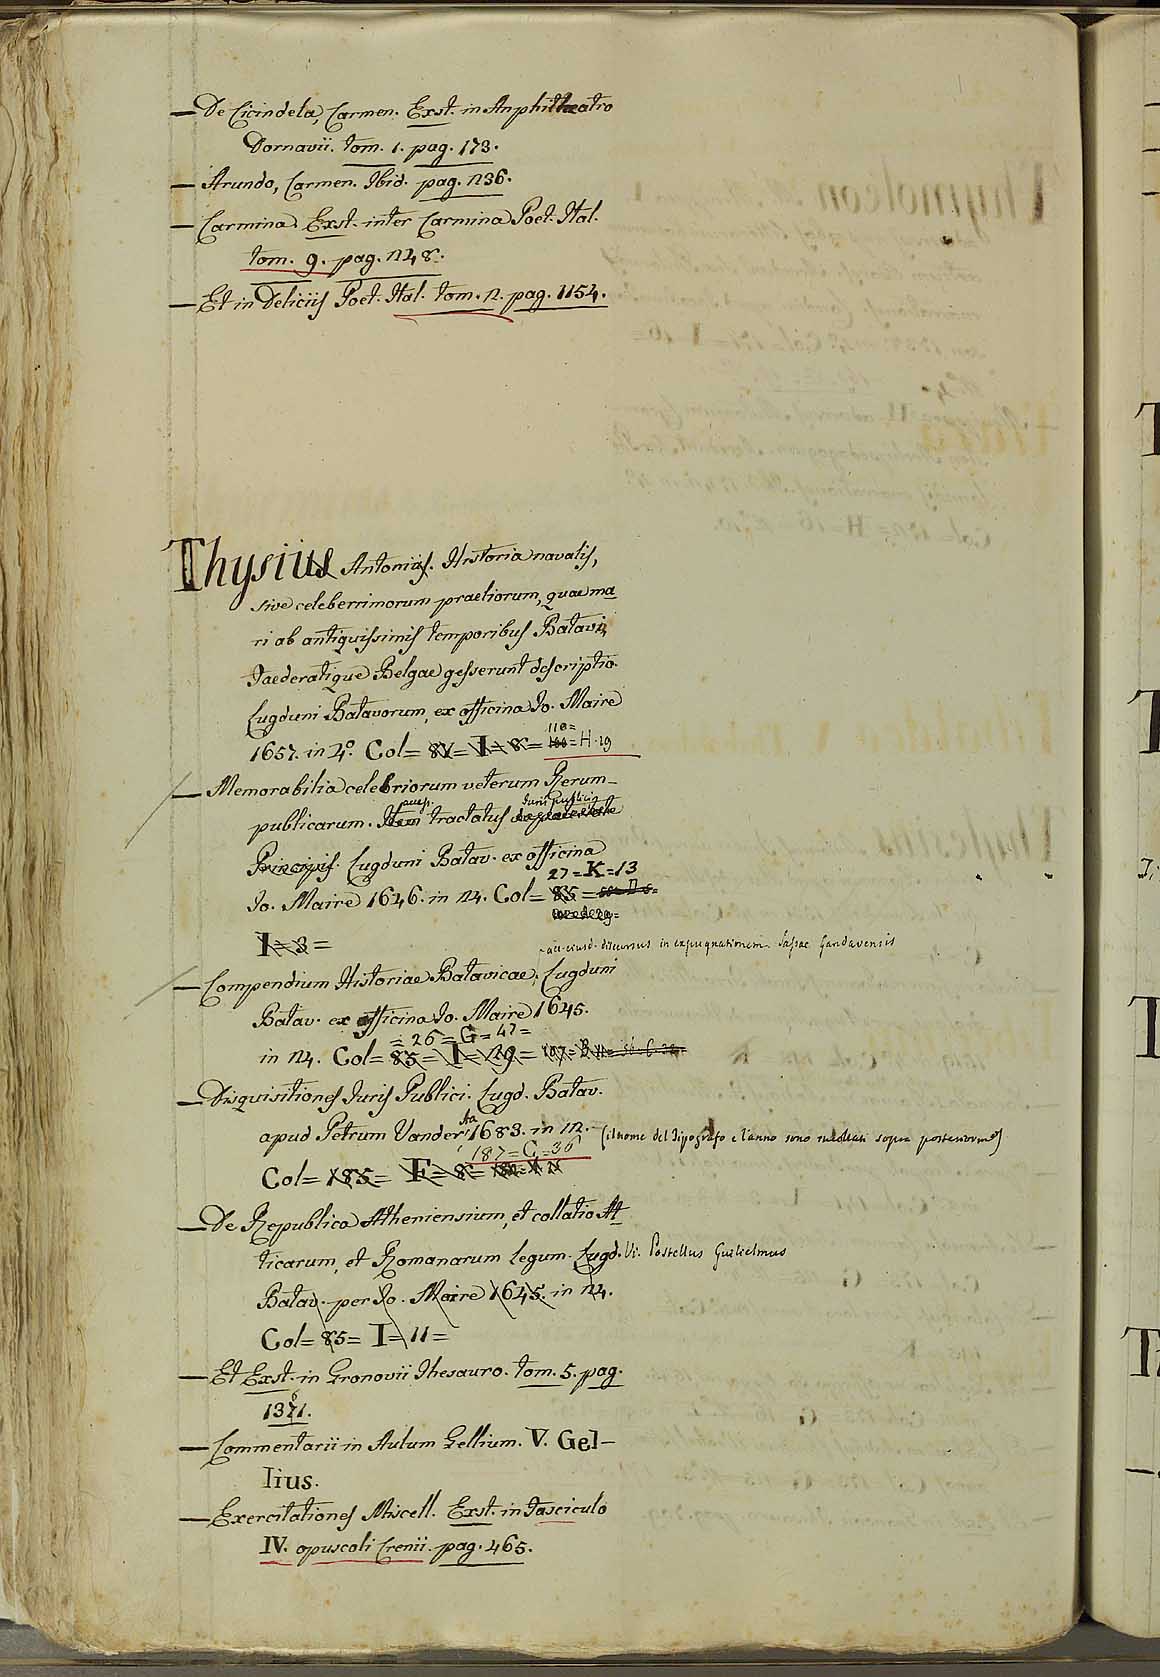 — De Cicindela, Carmen. Exst. in Anphitheatro
Dornavii. tom. 1. pag. 173.
— Arundo, Carmen. Ibid. pag. 236.
— Carmina. Exst. inter Carmina Poet. Ital.
tom. 9. pag. 248.
— Et in Deliciis Poet. Ital. tom. 2. pag. 1154.
Thysius Antonius. Historia navalis,
sive celeberrimorum praeliorum, quae ma
ri ab antiquissimis temporibus Batavi,
Faederatique Belgae gesserunt descriptio.
Lugduni Batavorum, ex officina Jo. Maire
118=
1657. in 4º. Col= 81= I= 8= H. 19
— Memorabilia celebriorum veterum Rerum-
Juris publicis
publicarum. Item tractatus de potestate
Principis. Lugduni Batav. ex officina
27=K=13
Jo. Maire 1646. in 24. Col= 85=
I=3=
acc. eiusd. discursus in expugnationem Sassae Gandavensis
— Compendium Historiae Batavicae, Lugduni
Batav. ex officina Jo. Maire 1645.
= 26=G=47=
in 24. Col= 85= I= 29=
— Disquisitiones Juris Publici. Lugd. Batav.
Aa
apud Petrum Vander 1683. in 12. (il nome del Tipografo e l'anno sono incollati sopra posteriorme)
187=G=36
Col= 185= F= 8=
— De Republica Atheniensium, et collatio At
ticarum, et Romanarum legum. Lugd. Vi. Postellus Guilielmus
Batav. per Jo. Maire 1645. in 24.
Col= 85= I= 11=
— Et Exst. in Gronovii Thesauro. tom. 5. pag.
1371.
— Commentarii in Aulum Gellium. V. Gel-
lius.
— Exercitationes Miscell. Exst. in Fasciculo
IV. opuscoli Crenii. pag. 465.